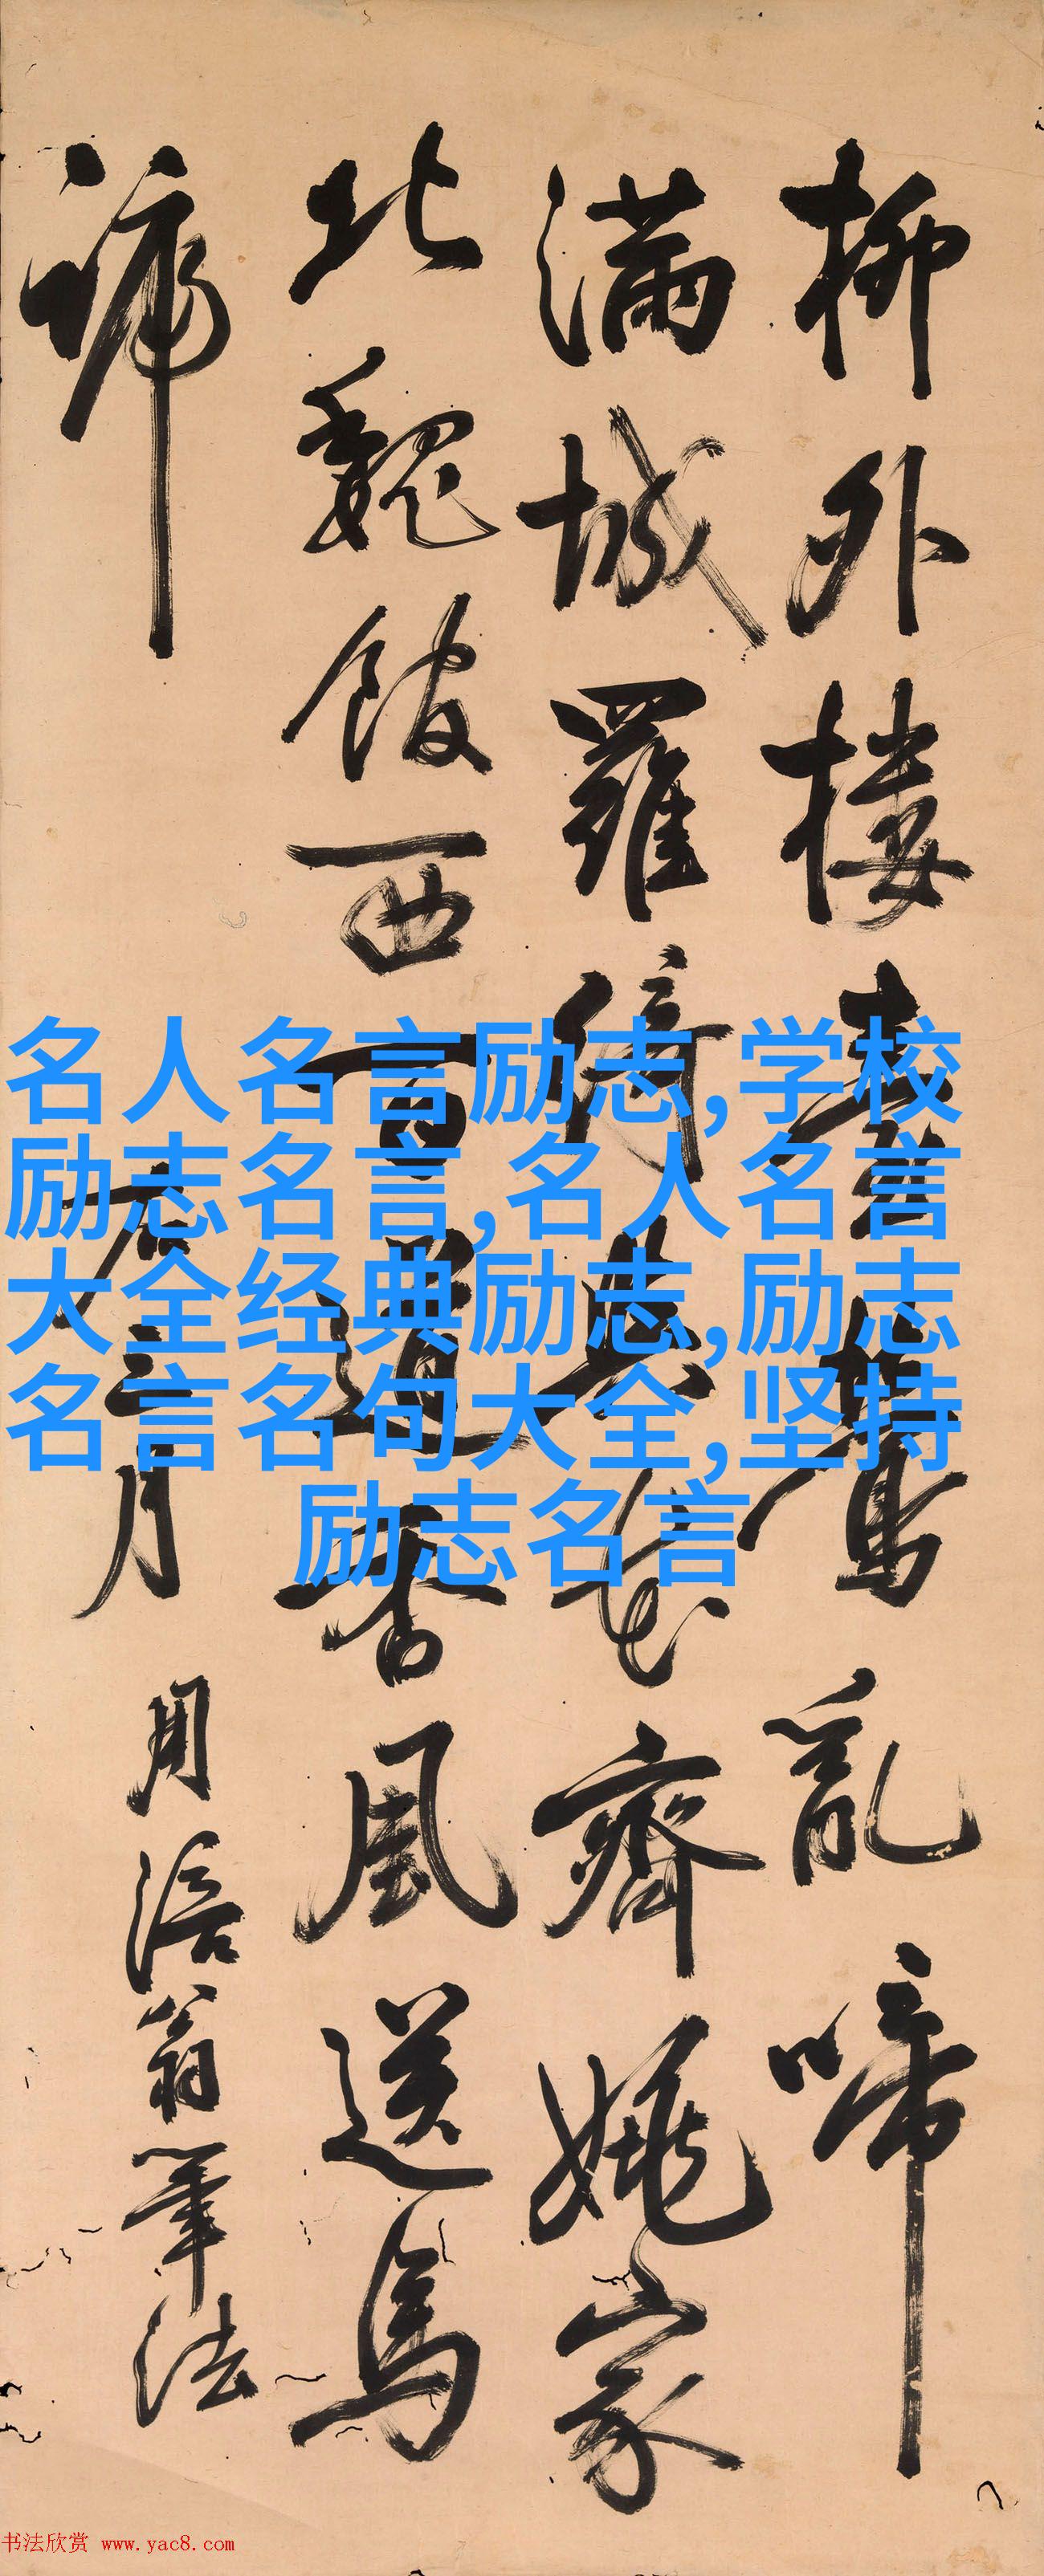 柳外樓臺鶯亂啼
滿城羅綺與花齊姚家
北魏館西百道香風送馬
蹄 右三月 用涪翁筆法
名人名言励志,学校
励志名言,名人名言
大全经典励志,励志
名言名句大全,坚持
励志名言
书法欣赏 www.yac8.com